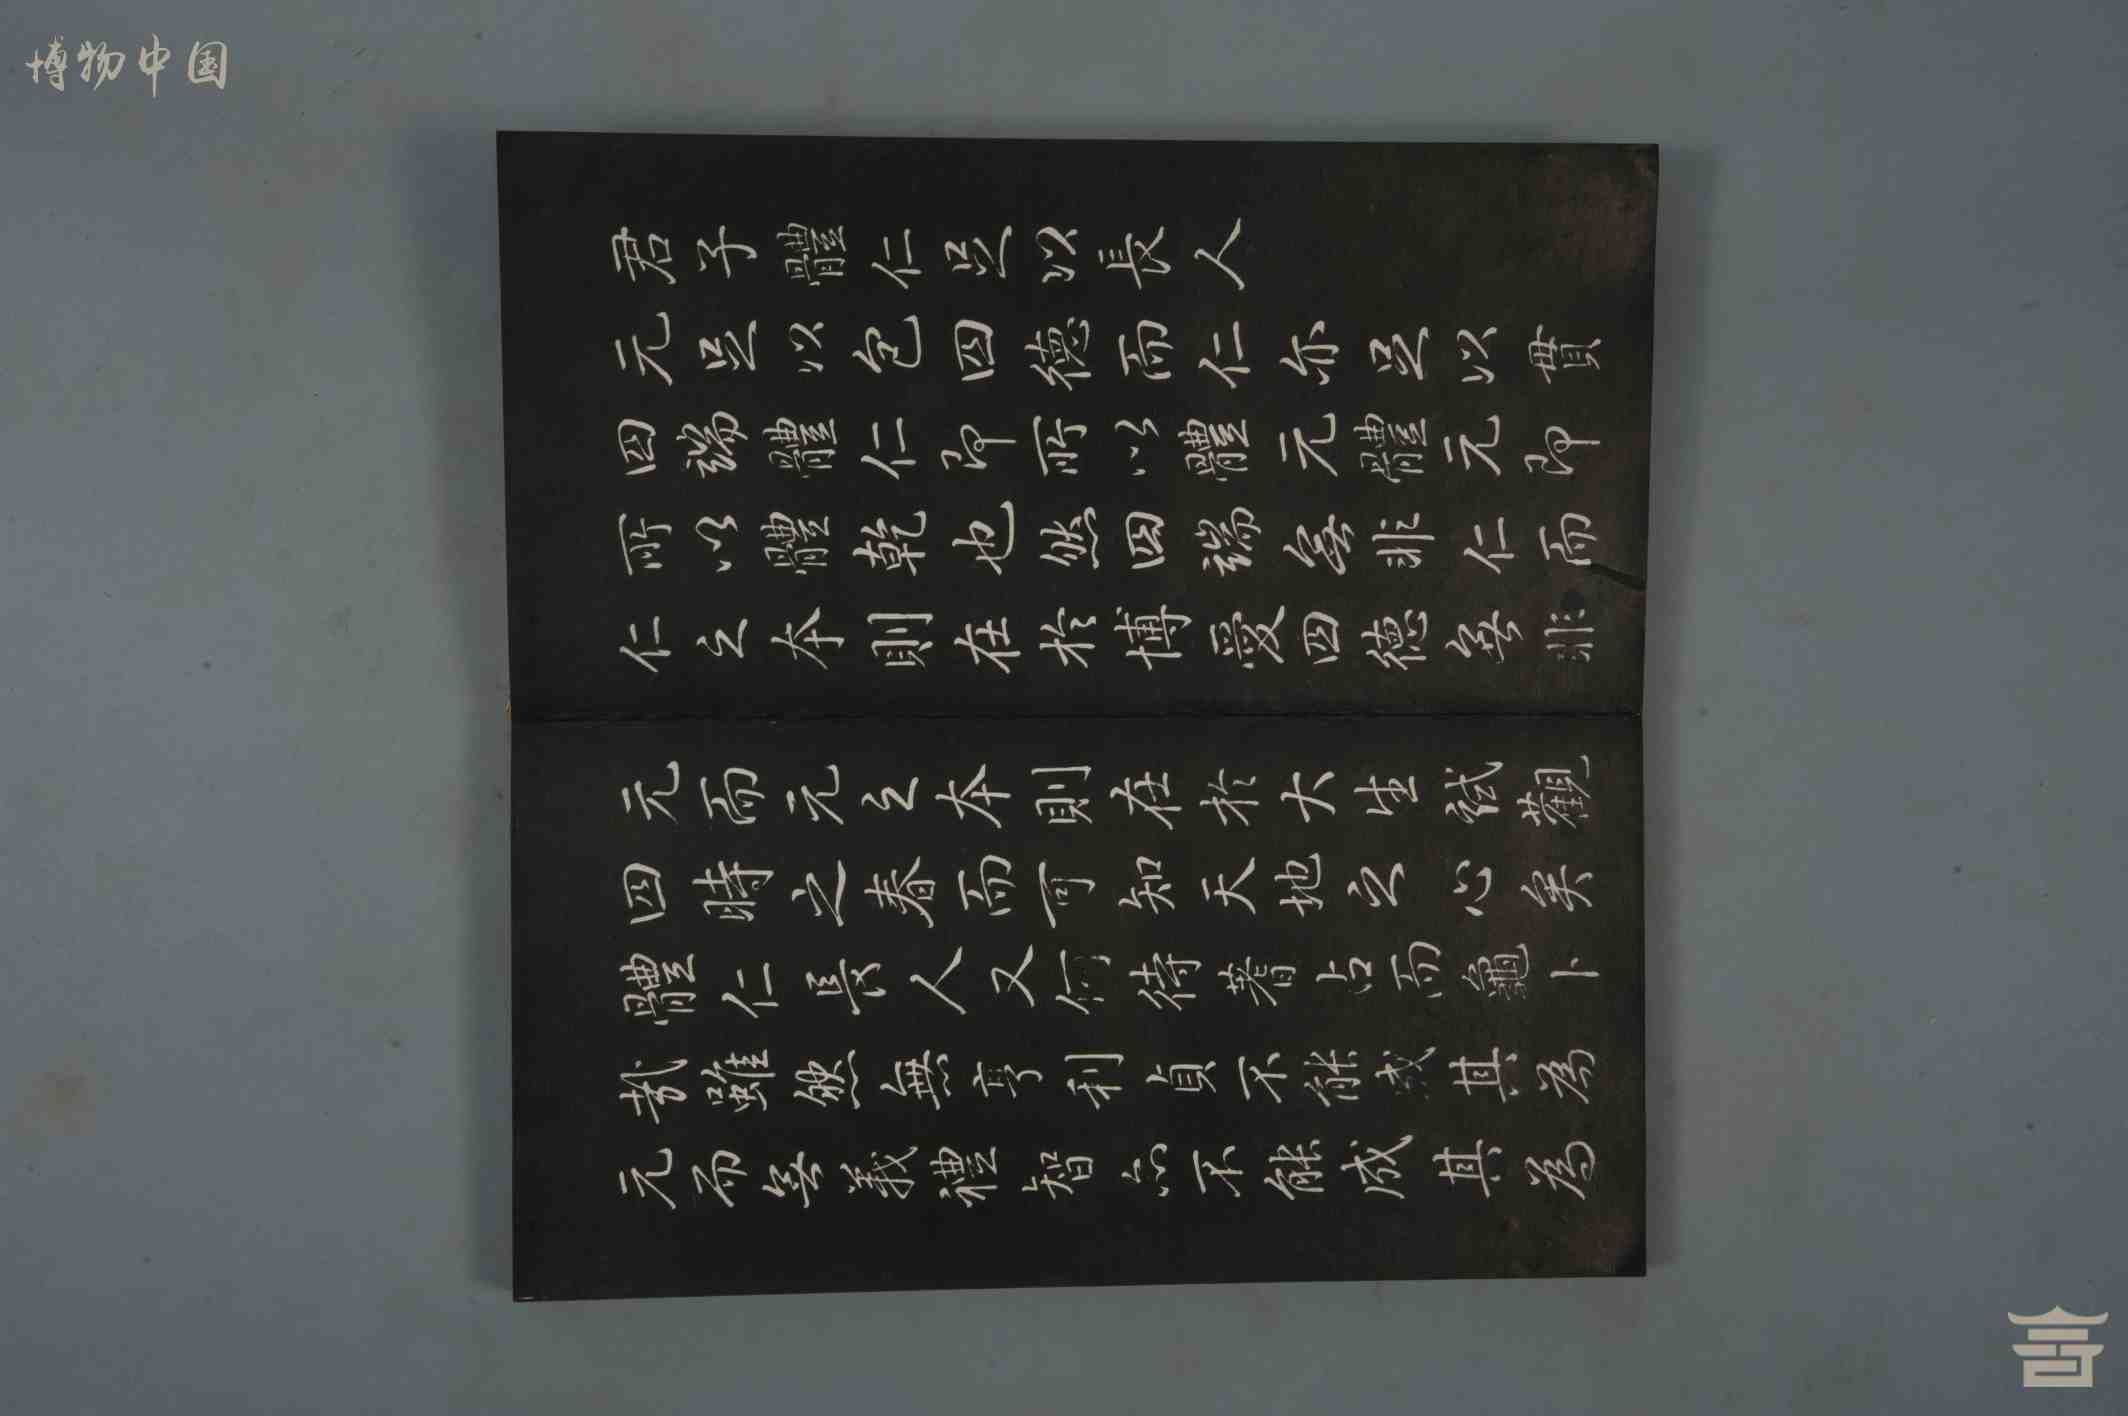 博物中国
君子體仁足以長人
元足以包四德而仁亦足以貫
四端體仁即所以體元體元即
所以體乾也然四端無非仁而
仁之本則在於博愛四德無非
元而元之本則在於大生試觀
四時之春而可知天地之心矣
體仁長人又何待蓍占而龜卜
哉雖然無亨利貞不能成其為
元而無義禮智亦不能成其為